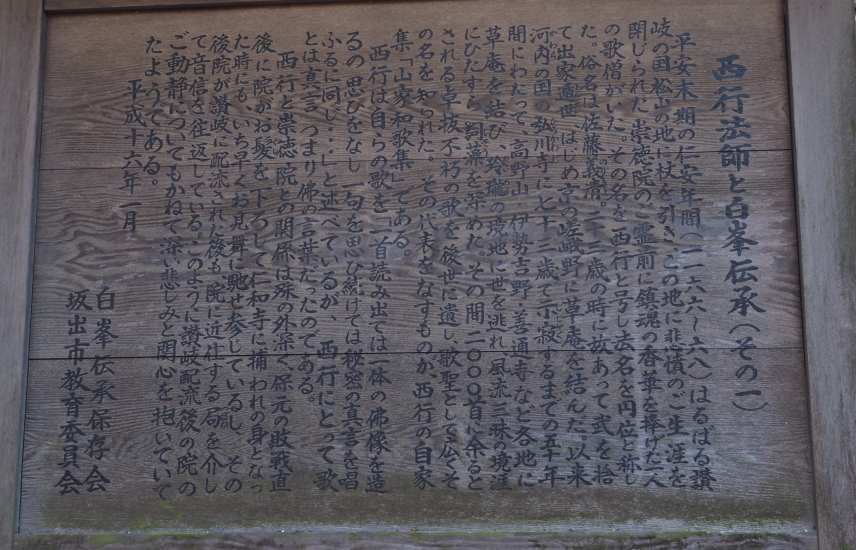 西行法師と白峯伝承（その一）
平安末期の仁安年間（一一六六～六八）はるばる讃
岐の国松山の地に杖を引き、この地に悲憤のご生涯を
閉じられた崇徳院のご霊前に鎮魂の香華を捧げた一人
の歌僧がいた。その名を西行と号し法名を円位と称し
た。俗名は佐藤義清。二十三歳の時に故あって武を捨
て出家遁世、はじめ京の嵯峨野に草庵を結んだ。以来
河内の国の弘川寺に七十三歳で示寂するまでの五十年
間にわたって、高野山、伊勢吉野、善通寺など各地に
草庵を結び、玲瓏の境地に世を逃れ、風流三昧の境涯
にひたすら詞藻を深めた。その間二〇〇〇首に余ると
される卓抜不朽の歌を後世に遺し、歌聖として広くそ
の名を知られた。その代表をなすものが西行の自家
集「山家和歌集」である。
西行は自らの歌を「一首読み出ては一体の佛像を造
るの思ひをなし、一句を思ひ続けては秘密の真言を唱
ふるに同じ・・・」と述べているが、西行にとって歌
とは真言、つまり佛の言葉だったのである。
西行と崇徳院との関係は殊の外深く、保元の敗戦直
後に院がお髪を下ろして仁和寺に捕われの身となっ
た時にも、いち早くお見舞に馳せ参じているし、その
後院が讃岐に配流された後も、院に近仕する局を介し
て音信を往返している。このように讃岐配流後の院の
ご動静についてもかねて深い悲しみと関心を抱いていて
たようである。
平成十六年一月
白峯伝承保存会
坂出市教育委員会